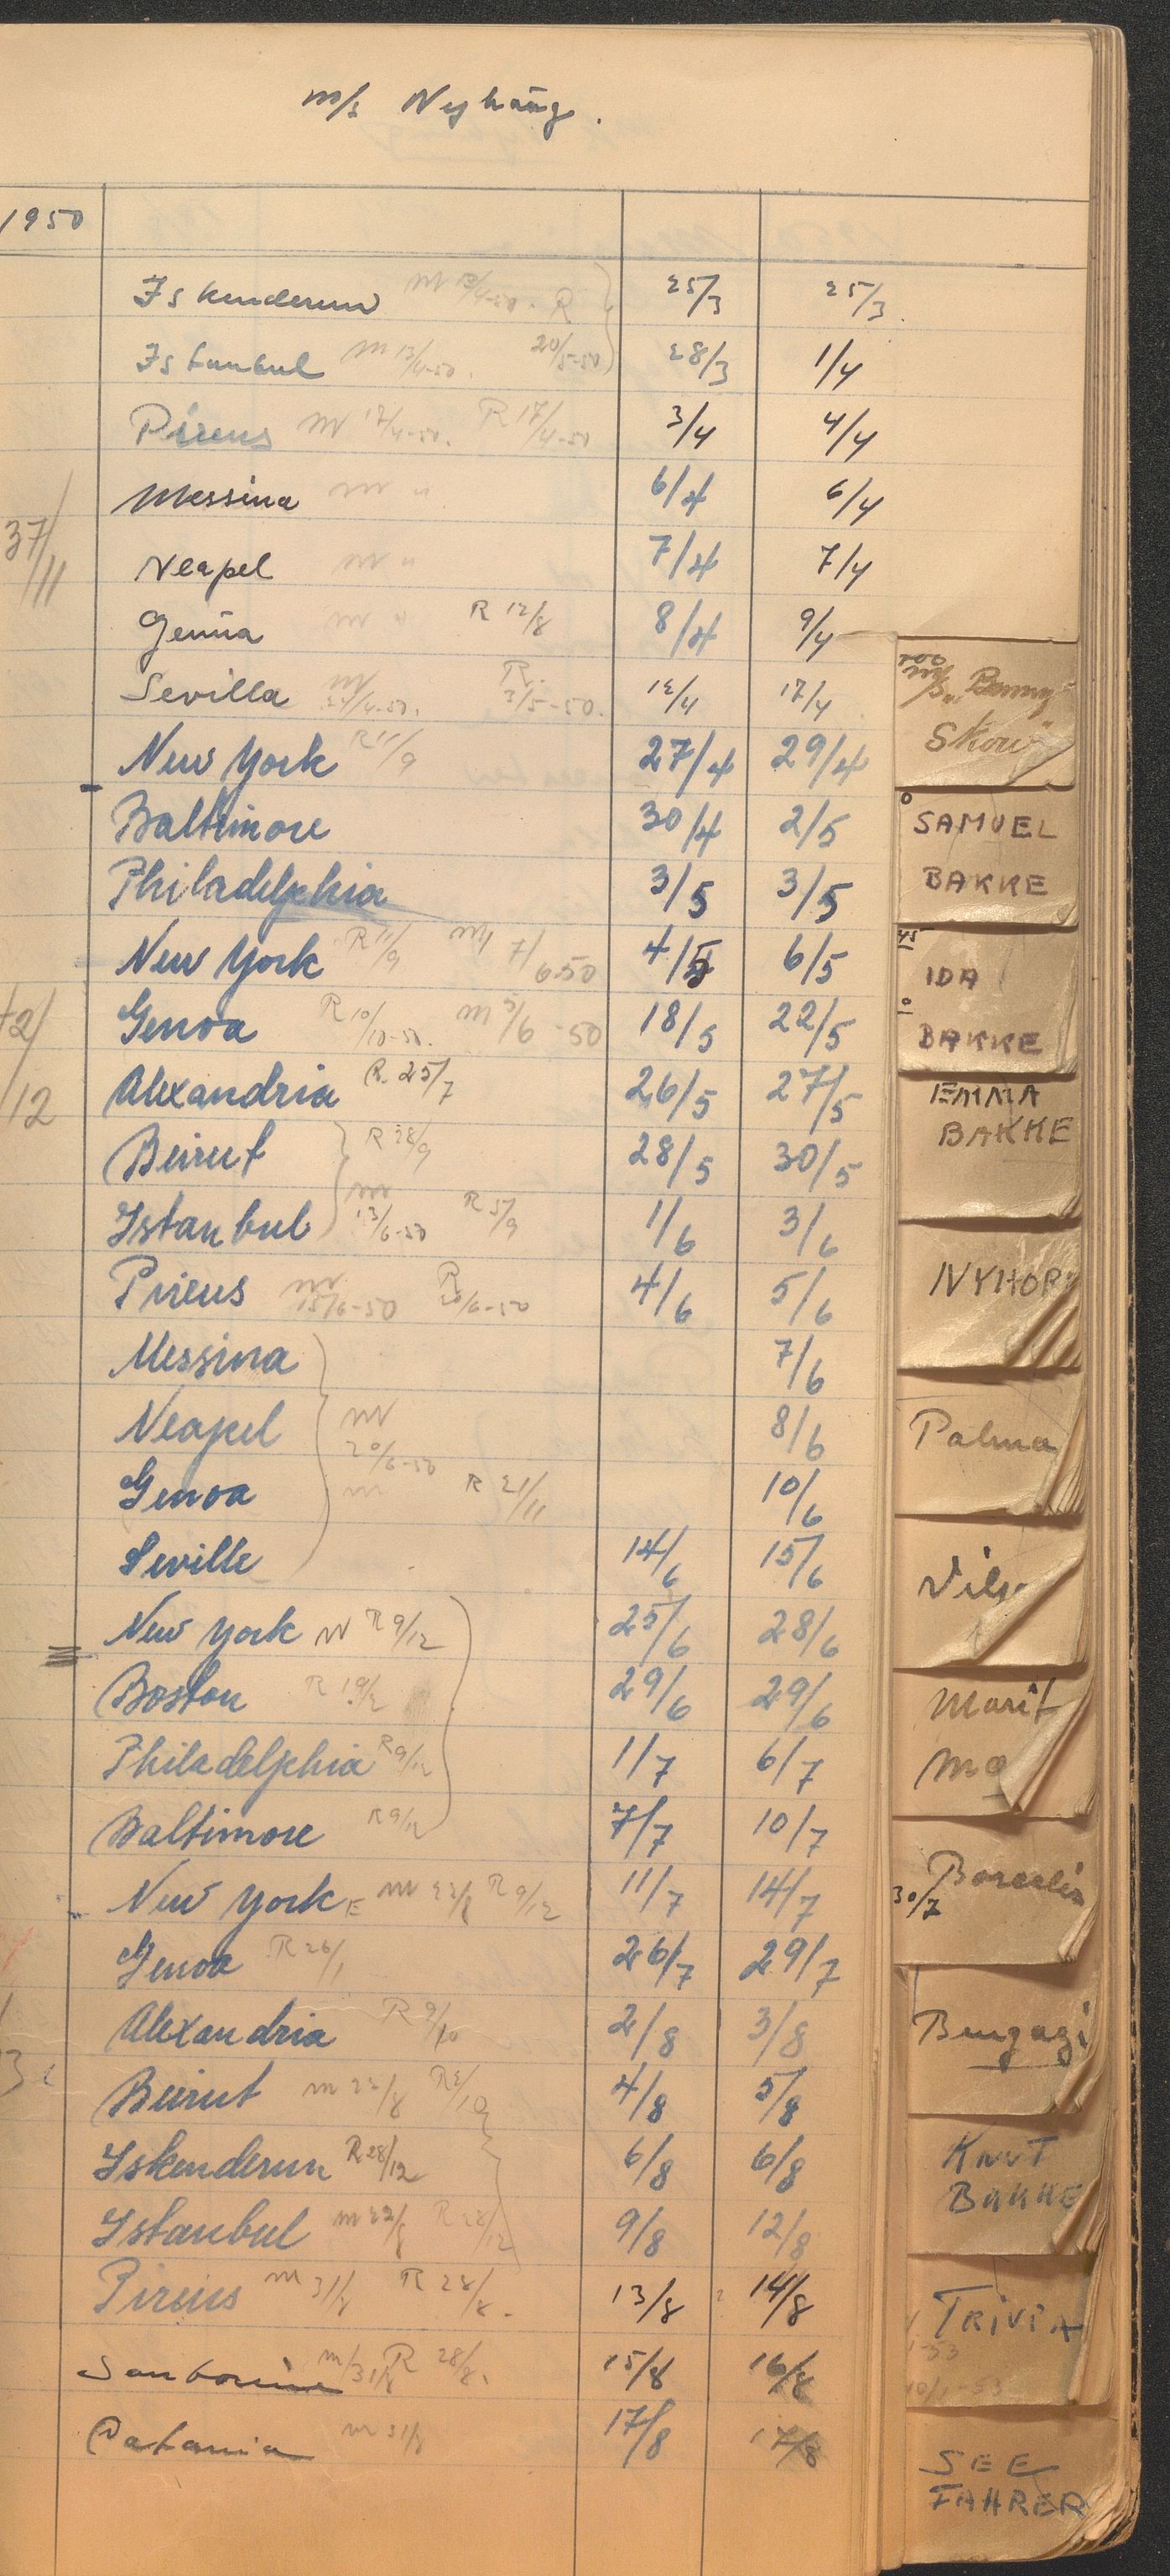 m/s Nyhaug.
1950
Iskenderun m 13/4-50. R 25/3 25/3.
Istanbul m 13/4-50. 20/5-50 28/3 1/4
Pireus m 17/4-50. R 17/4-50 3/4 4/4
Messina m " 6/4 6/4
37/11
Neapel m " 7/4 7/4
Genua m " R 12/8 8/4 9/4
Sevilla m /4-50. R. 3/5-50. 12/4 17/4
New York R 11/9 27/4 29/4
Baltimore 30/4 2/5
Philadelphia 3/5 3/5
New York R 11/9 m 7/6 50 4/5 6/5
Genoa R 10/10-50. m 5/6-50 18/5 22/5
12
Alexandria R. 25/7 26/5 27/5
Beirut R 28/9 28/5 30/5
Istanbul m 13/6-50 R 5/9 1/6 3/6
Pireus m 15/6-50 R 20/6-50 4/6 5/6
Messina 7/6
Neapel m 20/6-50 8/6
Genoa m R 21/11 10/6
Seville 14/6 15/6
New York m R 9/12 25/6 28/6
Boston R 19/2 29/6 29/6
Philadelphia R 9/12 1/7 6/7
Baltimore R 9/12 7/7 10/7
New York E m 22/8 R 9/12 11/7 14/7
Genoa R 26/1 26/7 29/7
Alexandria R 9/10 2/8 3/8
Beirut m 22/8 R 2/10 4/8 5/8
Iskenderun R 28/12 6/8 6/8
Istanbul m 22/8 R 28/12 9/8 12/8
Pireus m 31/8 R 28/8. 13/8 14/8
m/31/8 R 28/8. 15/8 16/8
Catania m 31/8 17/8 17/8
m/s "Benny
Skou"
SAMUEL
BAKKE
45
IDA
BAKKE
EMMA
BAKKE
NYHOR
Palma
Vils
Marit
Ma
30/7
Bengazi
KNUT
BAKKE
TRIVIA
SEE
FAHRER